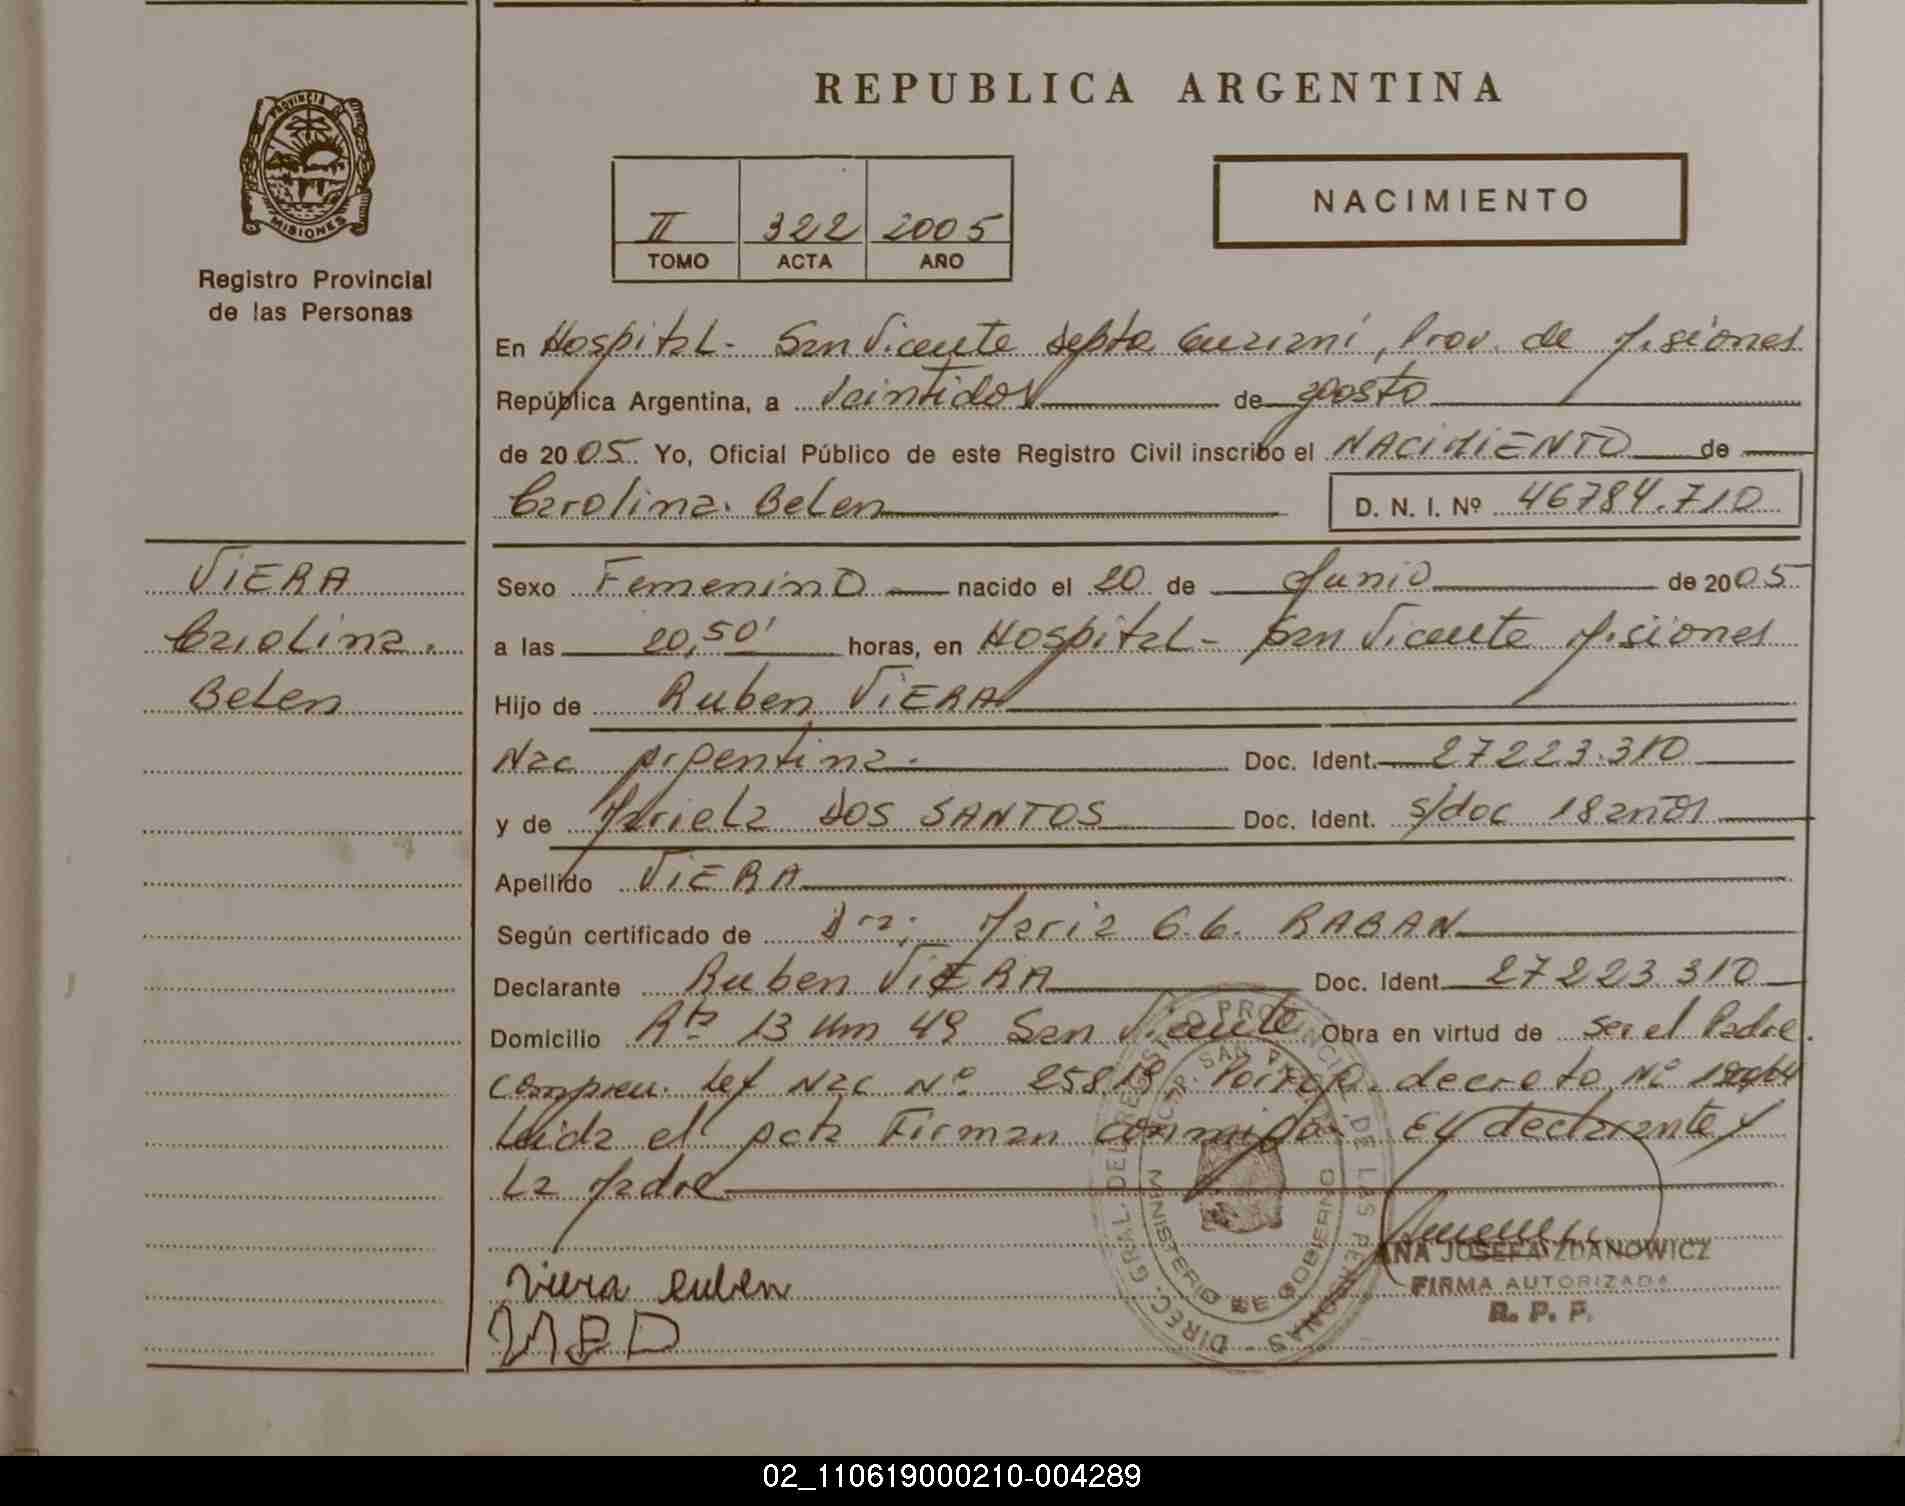 REPUBLICA ARGENTINA
PROVINCIA DE
MISIONES
Registro Provincial
de las Personas
II 322 2005
TOMO ACTA AÑO
NACIMIENTO
En Hospital - San Vicente Depto Guarani, Prov. de Misiones
República Argentina, a Veintidos de agosto
de 2005 Yo, Oficial Público de este Registro Civil inscribo el NACIMIENTO de
Carolina Belen D. N. I. Nº 46784.710
VIERA
Carolina
Belen
Sexo Femenino nacido el 20 de Junio de 2005
a las 20,50' horas, en Hospital - San Vicente Misiones
Hijo de Ruben VIERA
Nac Argentina Doc. Ident. 27223.310
y de Mariela DOS SANTOS Doc. Ident. s/doc 18 años
Apellido VIERA
Según certificado de Dra: Maria G.G. RABAN
Declarante Ruben VIERA Doc. Ident. 27223310
Domicilio Rta 13 Km 49 San Vicente Obra en virtud de ser el Padre.
Compren. Ley Nac Nº 25819 decreto Nº
Leida el acta Firman conmigo El declarante y
La Madre
Viera Ruben
MBD
DIREC. GRAL. DEL REGISTRO PROVINCIAL DE LAS PERSONAS
MINISTERIO DE GOBIERNO
ANA JOSEFA ZDANOWICZ
FIRMA AUTORIZADA
R. P. P.
02_110619000210-004289